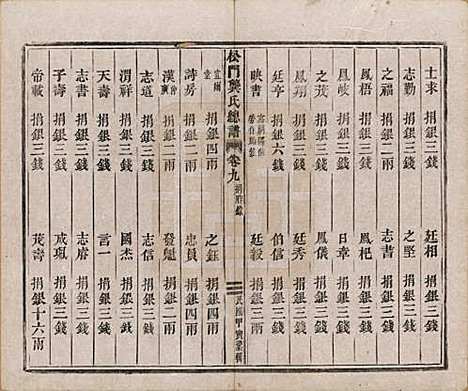 士求 捐銀三錢
廷相 捐銀三錢
志勤 捐銀三錢
之堅 捐銀三錢
之福 捐銀二兩
志書 捐銀二兩
鳳梧 捐銀三錢
鳳杞 捐銀三錢
鳳岐 捐銀三錢
日幸 捐銀三錢
之茂 捐銀三錢
鳳儀 捐銀三錢
鳳翔 捐銀三錢
廷秀 捐銀三錢
廷亭 捐銀六錢
伯信 捐銀三錢
映書 捐銀三錢
廷毅 捐銀三兩
松門龔氏總譜
卷九
民國甲
宜爾堂 捐銀四兩
之鈺 捐銀四兩
詩房 捐銀二兩
忠員 捐銀四兩
漢 捐銀一兩
發魁 捐銀二兩
志道 捐銀三錢
志信 捐銀三錢
渭祥 捐銀三錢
國杰 捐銀三錢
天壽 捐銀三錢
言一 捐銀三錢
志書 捐銀三錢
志府 捐銀三錢
子壽 捐銀三錢
成瓊 捐銀三錢
帝載 捐銀三錢
茂壽 捐銀十六兩